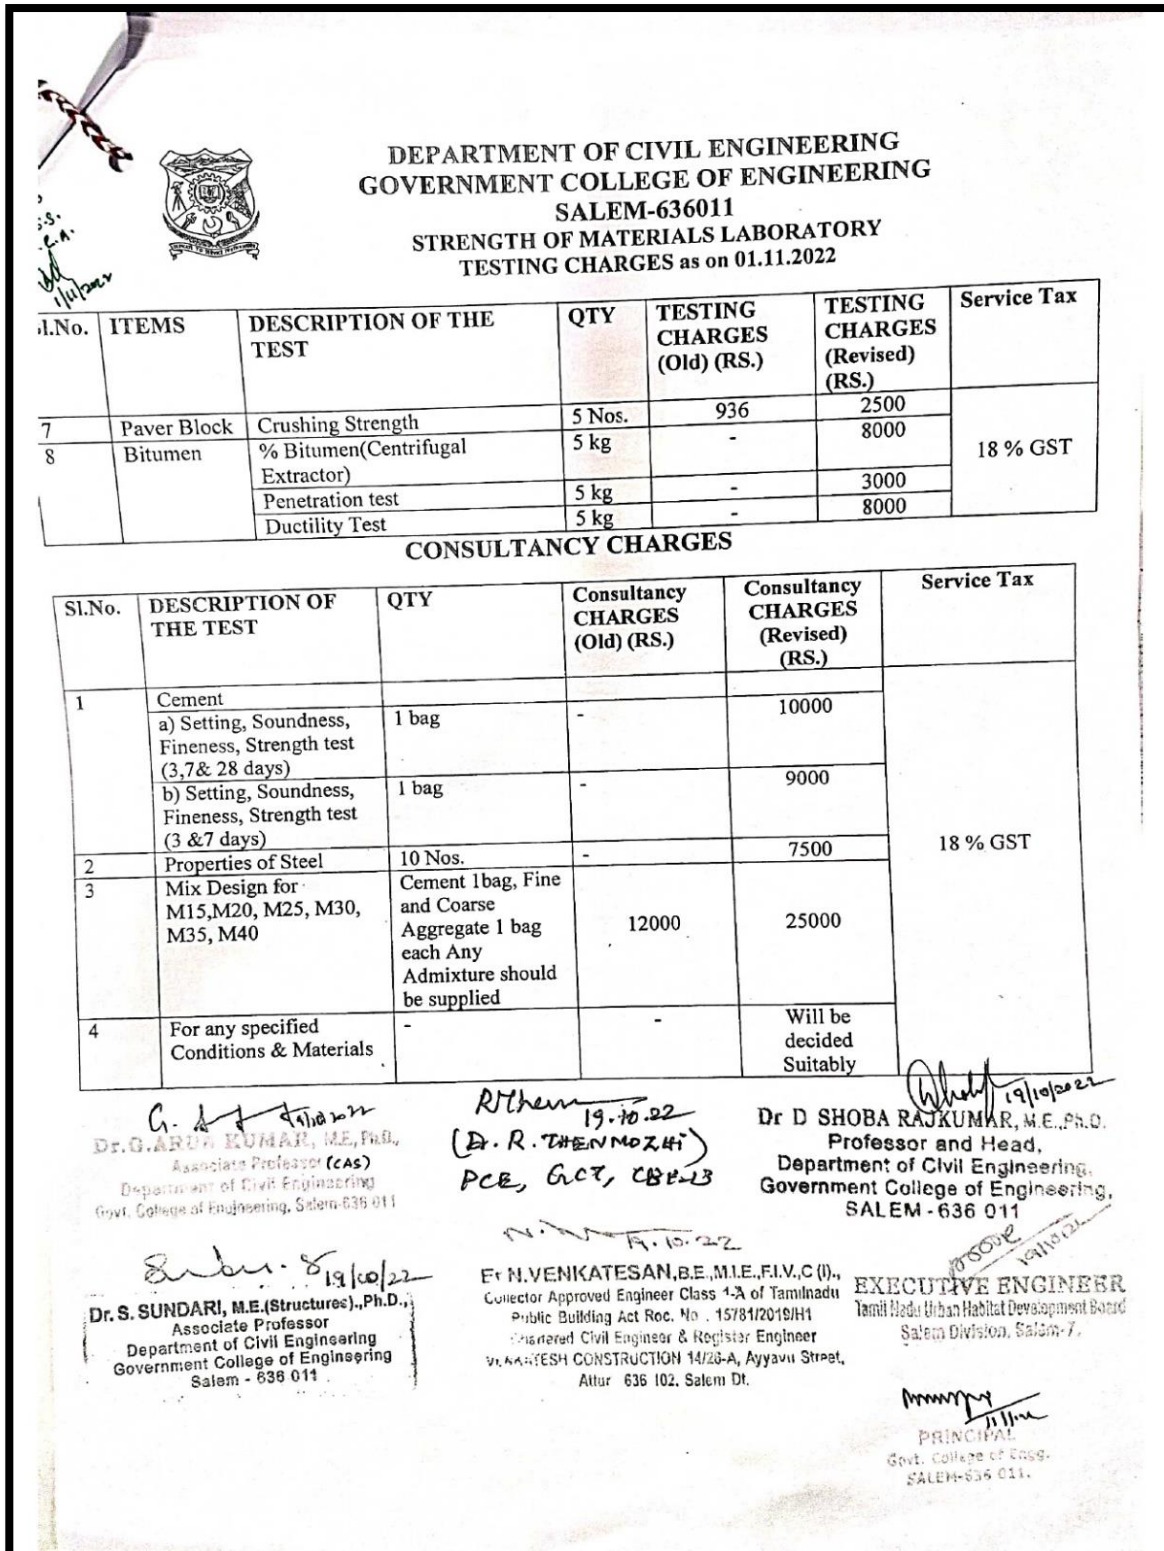 DEPARTMENT OF CIVIL ENGINEERING
GOVERNMENT COLLEGE OF ENGINEERING
SALEM-636011
STRENGTH OF MATERIALS LABORATORY
TESTING CHARGES as on 01.11.2022
1/11/2022
Sl.No. ITEMS DESCRIPTION OF THE TEST QTY TESTING CHARGES (Old) (RS.) TESTING CHARGES (Revised) (RS.) Service Tax
7 Paver Block Crushing Strength 5 Nos. 936 2500
8 Bitumen % Bitumen(Centrifugal Extractor) 5 kg - 8000
18 % GST
Penetration test 5 kg - 3000
Ductility Test 5 kg - 8000
CONSULTANCY CHARGES
Sl.No. DESCRIPTION OF THE TEST QTY Consultancy CHARGES (Old) (RS.) Consultancy CHARGES (Revised) (RS.) Service Tax
1 Cement
a) Setting, Soundness, Fineness, Strength test (3,7& 28 days) 1 bag - 10000
b) Setting, Soundness, Fineness, Strength test (3 &7 days) 1 bag - 9000
18 % GST
2 Properties of Steel 10 Nos. - 7500
3 Mix Design for M15,M20, M25, M30, M35, M40 Cement 1bag, Fine and Coarse Aggregate 1 bag each Any Admixture should be supplied 12000 25000
4 For any specified Conditions & Materials - - Will be decided Suitably
Dr.G.ARUN KUMAR, M.E, Ph.D.,
Associate Professor (CAS)
Department of Civil Engineering
Govt. College of Engineering, Salem-636 011
19.10.22
(Dr. R. THENMOZHI)
PCE, GCT, CBE-13
19/10/2022
Dr D SHOBA RAJKUMAR, M.E.,Ph.D.
Professor and Head,
Department of Civil Engineering,
Government College of Engineering,
SALEM - 636 011
19/10/22
Dr. S. SUNDARI, M.E.(Structures).,Ph.D.,
Associate Professor
Department of Civil Engineering
Government College of Engineering
Salem - 636 011
19.10.22
Er N.VENKATESAN,B.E.,M.I.E.,F.I.V.,C (I).,
Collector Approved Engineer Class 1-A of Tamilnadu
Public Building Act Roc. No . 15781/2019/H1
Chartered Civil Engineer & Register Engineer
VENKATESH CONSTRUCTION 14/26-A, Ayyavu Street,
Attur 636 102. Salem Dt.
19/10/22
EXECUTIVE ENGINEER
Tamil Nadu Urban Habitat Development Board
Salem Division, Salem-7.
PRINCIPAL
Govt. College of Engg.
SALEM-636 011.